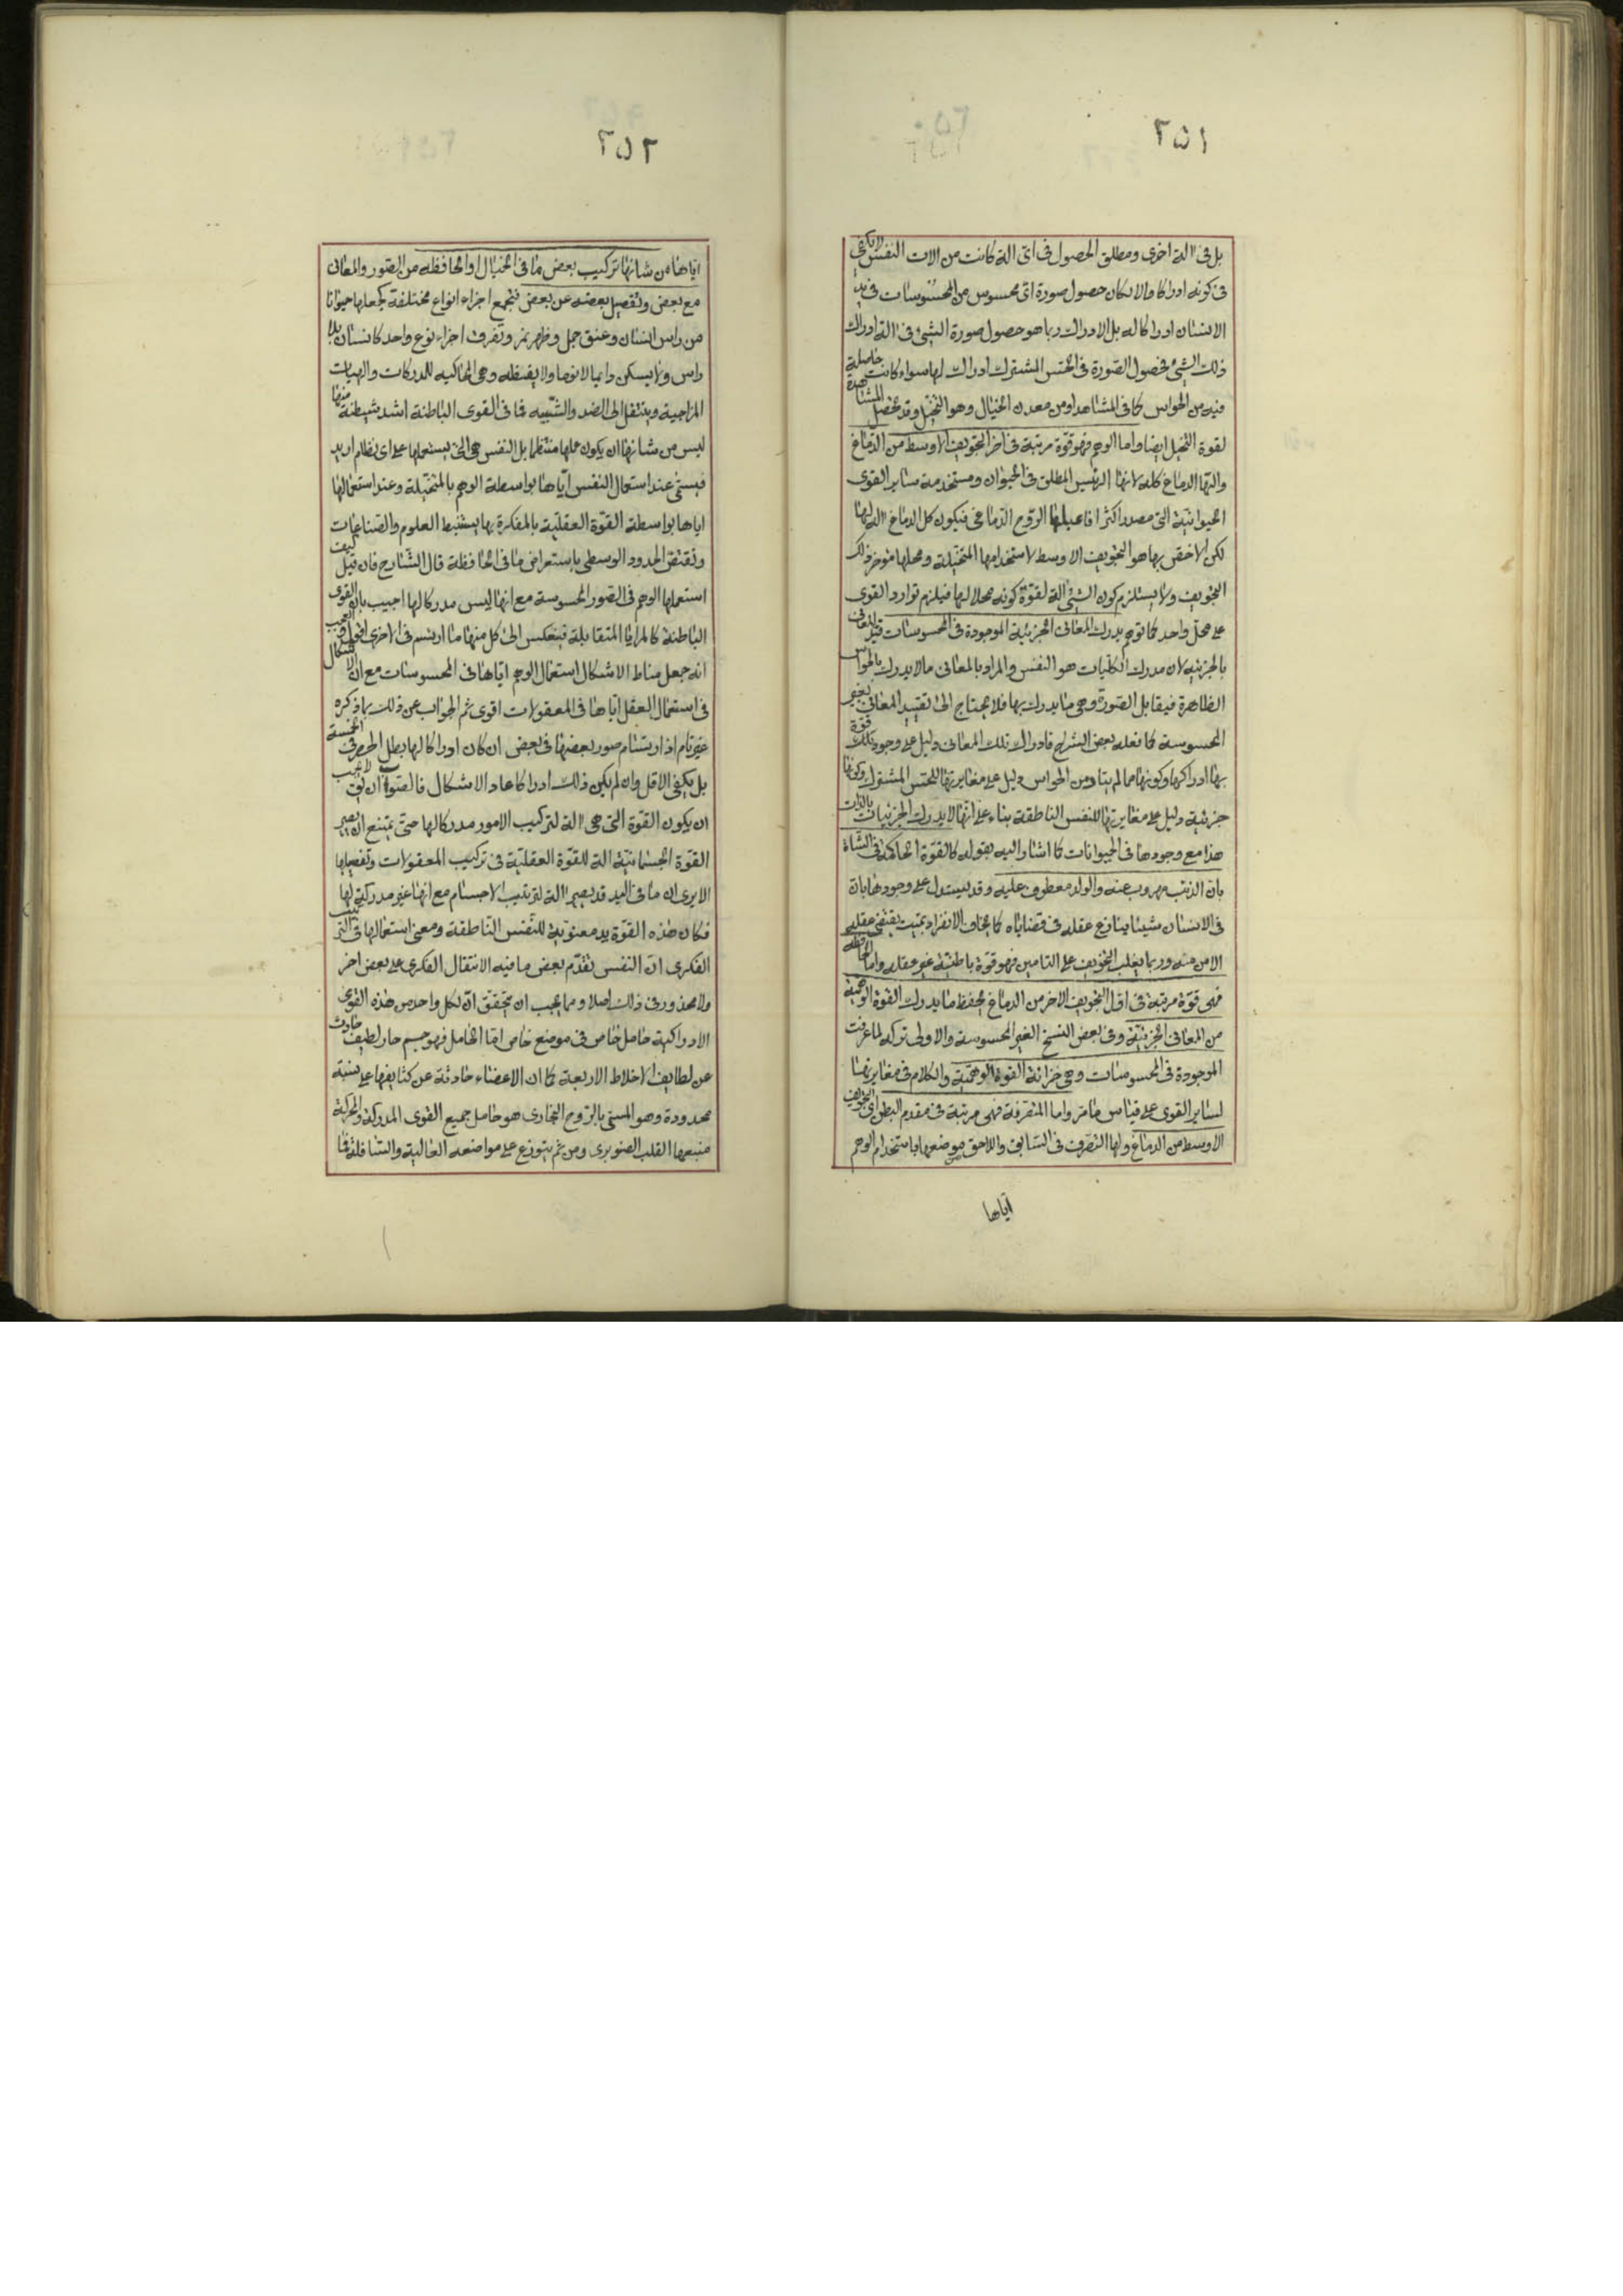 ٢٥١
بل فى الة اخرى ومطلق الحصول فى اى الة كانت من الات النفس لا يكفى
فى كونه ادراكا والا لكان حصول صورة اى محسوس من المحسوسات فى يد
الانسان ادراكا له بل الادراك ربما هو حصول صورة الشئ فى الة ادراك
ذلك الشئ فحصول الصورة فى الحس المشترك ادراك لها سواء كانت حاصلة
فيه من الحواس كما فى المشاهد او من معدن الخيال وهو التخيل وقد تحصل المشاهدة
لقوة التخيل ايضا واما الوهم فهو قوة مرتبة فى اخر التجويف الاوسط من الدماغ
والتها الدماغ كله لانها الرئيس المطلق فى الحيوان ومستخدمة ساير القوى
الحيوانية التى مصدر اكثر افاعيلها الروح الدماغى فيكون كل الدماغ الة لها
لكن الاخص بها هو التجويف الاوسط لاستخدامها المتخيلة ومحلها مؤخر ذلك
التجويف ولا يستلزم كون الشئ الة لقوة كونه محلا لها فيلزم توارد القوى
على محل واحد كما توهم يدرك المعانى الجزئية الموجودة فى المحسوسات قيد المعانى
بالجزئيه لان مدرك الكليات هو النفس والمراد بالمعانى ما لا يدرك بالحواس
الظاهرة فيقابل الصورة وهى ما يدرك بها فلا يحتاج الى تقييد المعانى بغير
المحسوسة كما فعله بعض الشراح فادراك تلك المعانى دليل على وجود قوة تلك
بها ادراكها وكونها مما لم يتاد من الحواس دليل على مغايرتها للحس المشترك وكونها
جزئية دليل على مغايرتها للنفس الناطقة بناء على انها لا يدرك الجزئيات بالذات
هذا مع وجودها فى الحيوانات كما اشار اليه بقوله كالقوة الحاكمة فى الشاة
بان الذئب مهروب عنه والولد معطوف عليه وقد يستدل على وجودها بان
فى الانسان شيئا ينازع عقله فى قضاياه كما يخاف الانفراد بميت يقتضى عقله
الامن منه وربما يغلب التخويف على التامين فهو قوة باطنية غير عقله واما الحافظة
فهى قوة مرتبة فى اول التجويف الاخر من الدماغ يحفظ ما يدرك القوة الوهمية
من المعانى الجزئية وفى بعض النسخ الغير المحسوسة والاولى تركه لما عرفت
الموجودة فى المحسوسات وهى خزانة القوة الوهمية والكلام فى مغايرتها
لساير القوى على قياس ما مر واما المتصرفة فهى مرتبة فى مقدم البطن اى التجويف
الاوسط من الدماغ ولها التصرف فى السابق واللاحق موضعها باستخدام الوهم
اياها
٢٥٢
اياها من شانها تركيب بعض ما فى الخيال او الحافظه من الصور والمعانى
مع بعض وتفصيل بعضه عن بعض فتجمع اجزاء انواع مختلفة كجعلها حيوانا
من راس انسان وعنق جمل وظهر نمر وتفرق اجزاء نوع واحد كانسان بلا
راس ولا يسكن دايما لا نوما ولا يقظه وهى المحاكيه للمدركات والهيات
المزاجية وينتقل الى الضد والشبيه فما فى القوى الباطنة اشد شيطنة منها
ليس من شانها ان يكون عملها منتظما بل النفس هى التى يستعملها على اى نظام اريد
فيسمى عند استعمال النفس اياها بواسطة الوهم بالمتخيلة وعند استعمالها
اياها بواسطة القوة العقلية بالمفكرة بها يستنبط العلوم والصناعات
وتقتنص الحدود الوسطى باستعراض ما فى الحافظة قال الشارح فان قيل كيف
استعملها الوهم فى الصور المحسوسة مع انها ليس مدركا لها اجيب بان القوى
الباطنة كالمرايا المتقابلة فينعكس الى كل منها ما ارتسم فى الاخرى اقول العجب
انه جعل مناط الاشكال استعمال الوهم اياها فى المحسوسات مع ان الاشكال
فى استعمال العقل اياها فى المعقولات اقوى ثم الجواب عن ذلك بما ذكره
غير تام اذ ارتسام صور بعضها فى بعض ان كان ادراكا لها بطل الحصر فى الخمسة
بل يكفى الاقل وان لم يكن ذلك ادراكا عاد الاشكال فالصواب ان يق لا يجب
ان يكون القوة التى هى الة لتركيب الامور مدركا لها حتى يمتنع ان يصير
القوة الجسمانية الة للقوة العقلية فى تركيب المعقولات وتفصيلها
الا يرى ان ما فى اليد قد يصير الة لترتيب الاجسام مع انها غير مدركة لها
فكان هذه القوة يد معنوية للنفس الناطقة ومعنى استعمالها فى الترتيب
الفكرى ان النفس تقدم بعض ما فيه الانتقال الفكرى على بعض اخر
ولا محذور فى ذلك اصلا ومما يجب ان يتحقق ان لكل واحد من هذه القوى
الادراكية حامل خاص فى موضع خاص اما الحامل فهو جسم حار لطيف حادث
عن لطايف الاخلاط الاربعة كما ان الاعضاء حادثة عن كثايفها على نسبة
محدودة وهو المسمى بالروح البخارى هو حامل جميع القوى المدركة والمحركة
منبعها القلب الصنوبرى ومن ثم يتوزع على مواضعه العالية والسافلة فما